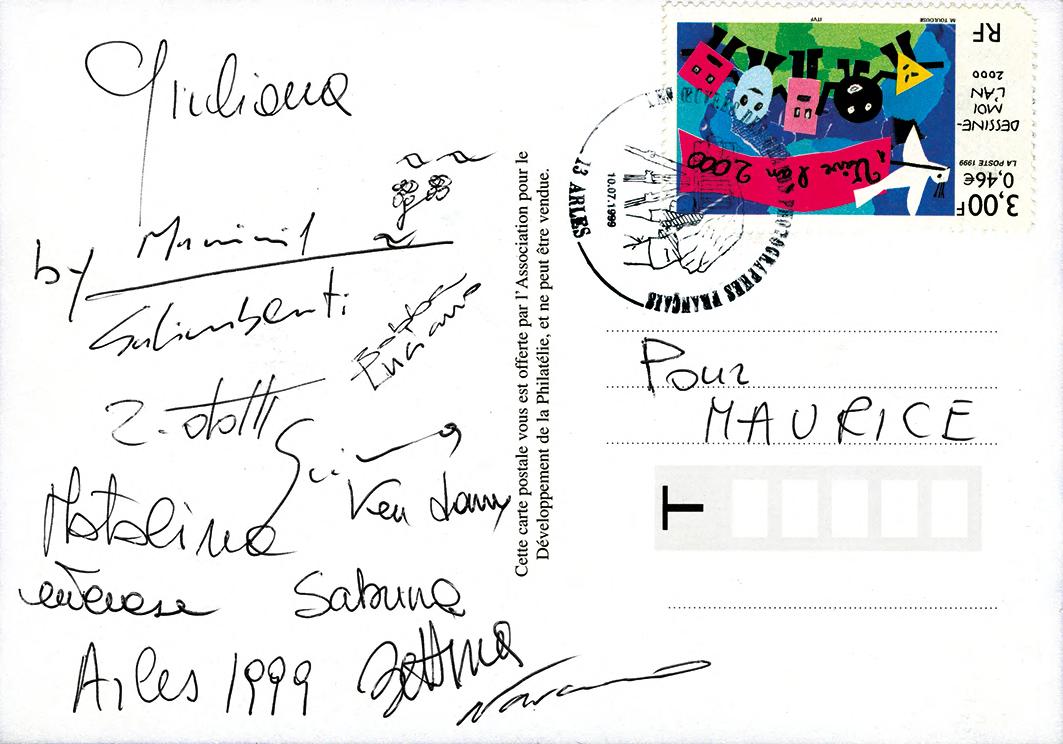 Giuliana
by
Galimberti
Z. dotti
Natalina
Sabrina
Arles 1999
Bettina
Cette carte postale vous est offerte par l'Association pour le
Développement de la Philatélie, et ne peut être vendue.
RF
DESSINE-
MOI
L'AN
2000
LA POSTE 1999
0,46€
3,00F
Vive l'an 2000
ITVF
M. TOULOUSE
PHOTOGRAPHES FRANÇAIS
13 ARLES
10.07.1999
Pour
MAURICE
T